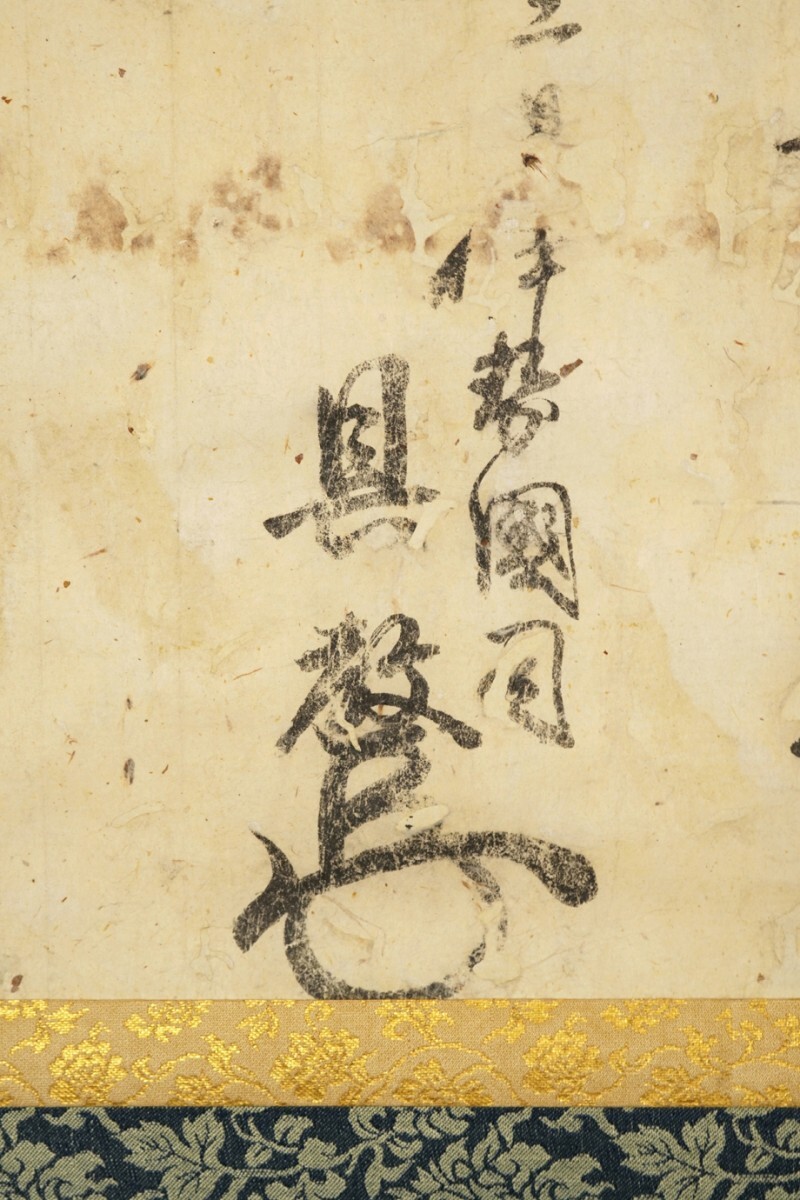 日
伊勢國司
具教